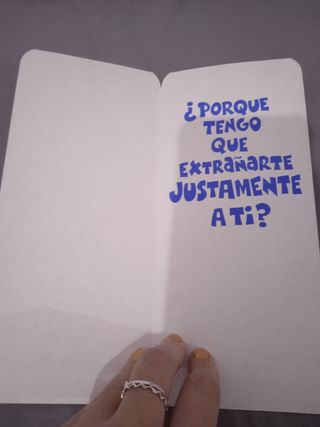 ¿PORQUE
TENGO
QUE
EXTRAÑARTE
JUSTAMENTE
A Ti?